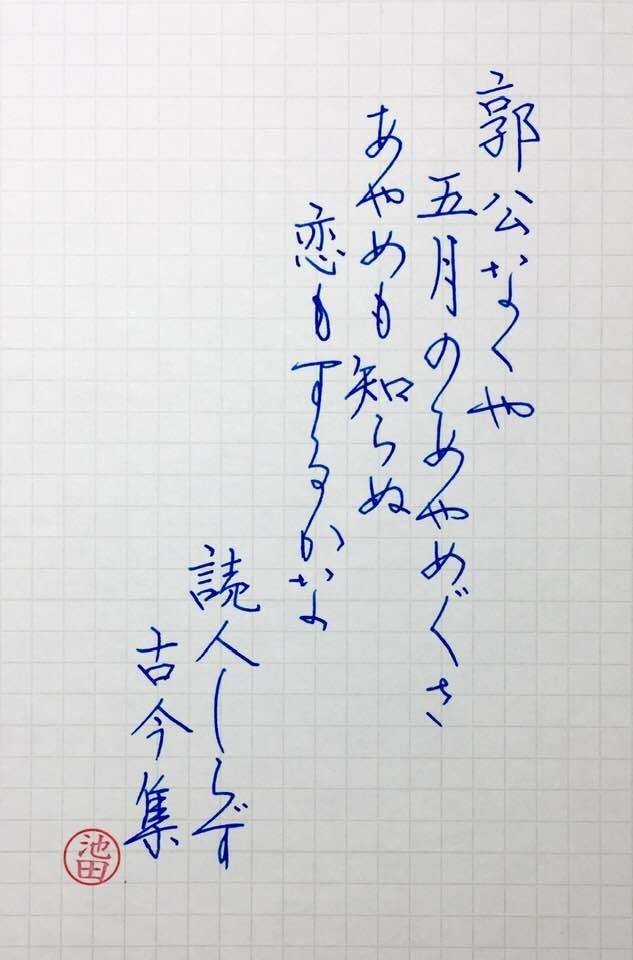 郭公なくや
五月のあやめぐさ
あやめも知らぬ
恋もするかな
読人しらず
古今集
池田